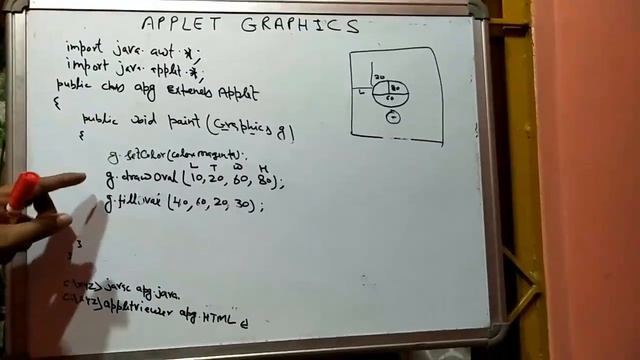 APPLET GRAPHICS
import java.awt.*;
import java.applet.*;
public class apg Extends Applet
{
public void paint(Graphics g)
{
g.setColor(color.magenta);
L T W H
g.drawOval(10,20,60,80);
g.fillOval(40,60,20,30);
}
}
c:\xyz>javac apg.java.
c:\xyz>appletviewer apg.HTML
20
L
80
60